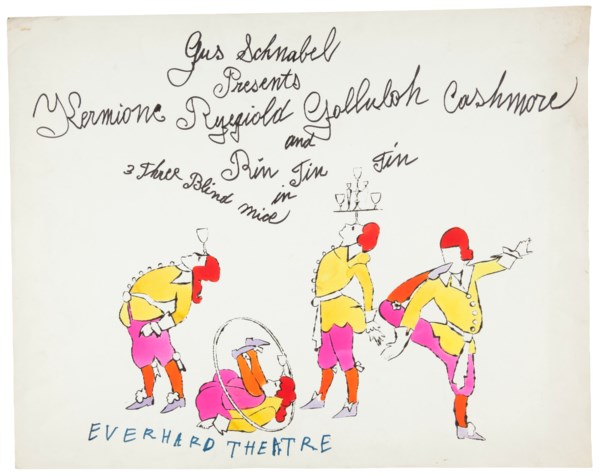 Gus Schnabel
Presents
Hermione Ryegiold Golluloh Cashmore
and
Rin Tin Tin
in
3 Three Blind mice
EVERHARD THEATRE